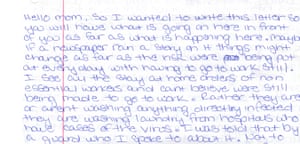 Hello mom, So I wanted to write this letter so
you will have what is going on here in front
of you as far as what is happening here, maybe
if a newspaper ran a story on it things might
change as far as the risk were being put
at everyday with having to go to work still.
I see all the stay at home orders of non
essential workers and cant believe were still
being made to go to work. Either they are
or arent washing anything directly infected
they are washing laundry from hospitals who
have cases of the virus. I was told that by
a guard who I spoke to about it. Nay to